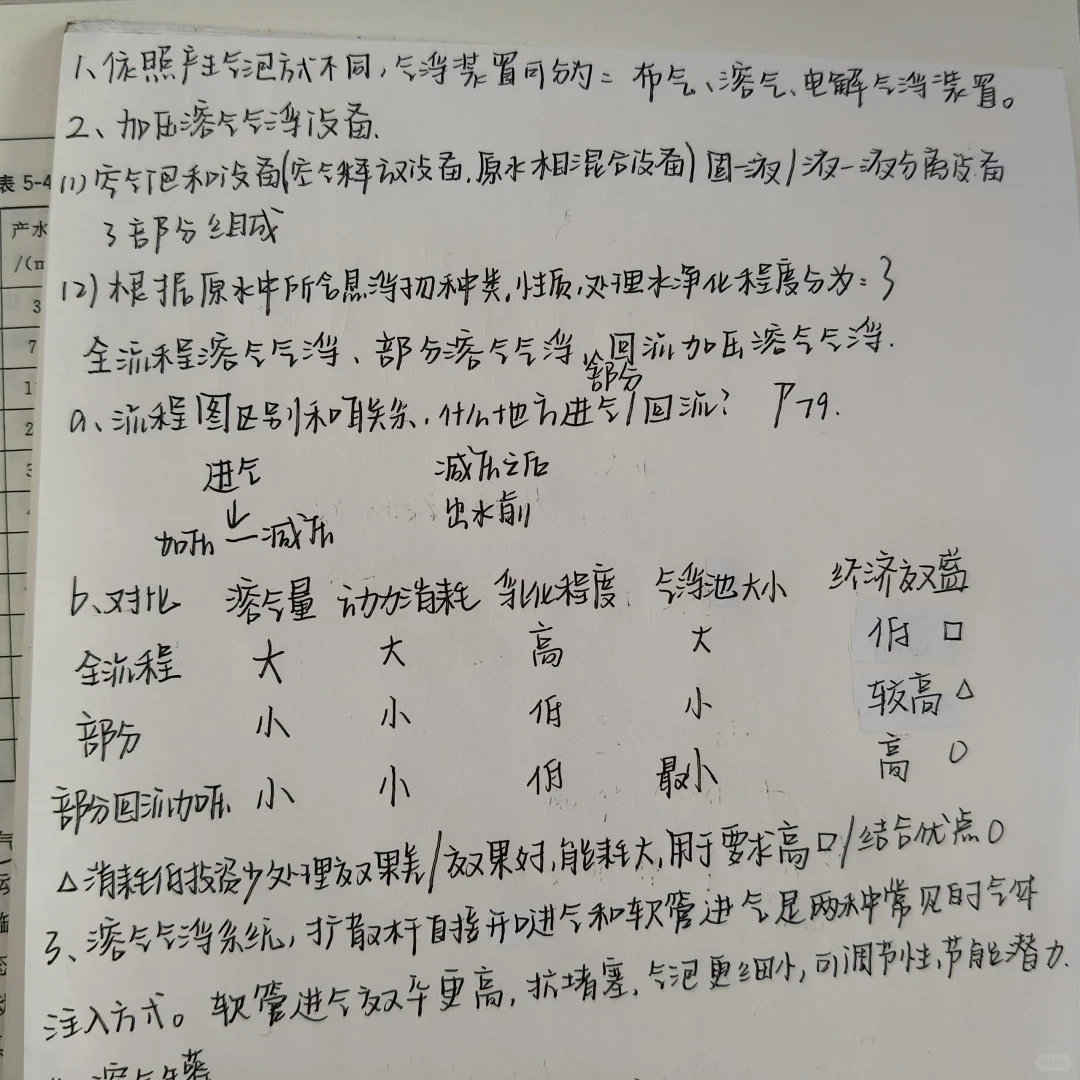 1、依照产生气泡方式不同,气浮装置可分为:布气、溶气、电解气浮装置。
2、加压溶气气浮设备.
表 5-4
(1) 空气饱和设备(空气释放设备,原水相混合设备)固一液/液一液分离设备
产水
3部分组成
/(m
(2)根据原水中所含悬浮物种类,性质,处理水净化程度分为:3
3
全流程溶气气浮、部分溶气气浮、部分回流加压溶气气浮.
7
a、流程图区别和联系,什么地方进气/回流? P79.
1
2
3
进气 减压之后
↓ 出水前
加压 一 减压
b、对比 溶气量 动力消耗 乳化程度 气浮池大小 经济效益
全流程 大 大 高 大 低 □
部分 小 小 低 小 较高 △
部分回流加压 小 小 低 最小 高 ○
△消耗低投资少处理效果差/效果好,能耗大,用于要求高□/结合优点○
3、溶气气浮系统,扩散杆直接开口进气和软管进气是两种常见的气体
注入方式。软管进气效率更高,抗堵塞,气泡更细小,可调节性,节能潜力.